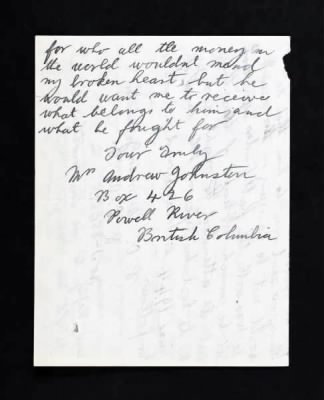 for who all the money in
the world wouldnt mend
my broken heart, but he
would want me to receive
what belongs to him, and
what he fought for
Your Truly
Mrs Andrew Johnston
Box 426
Powell River
British Columbia